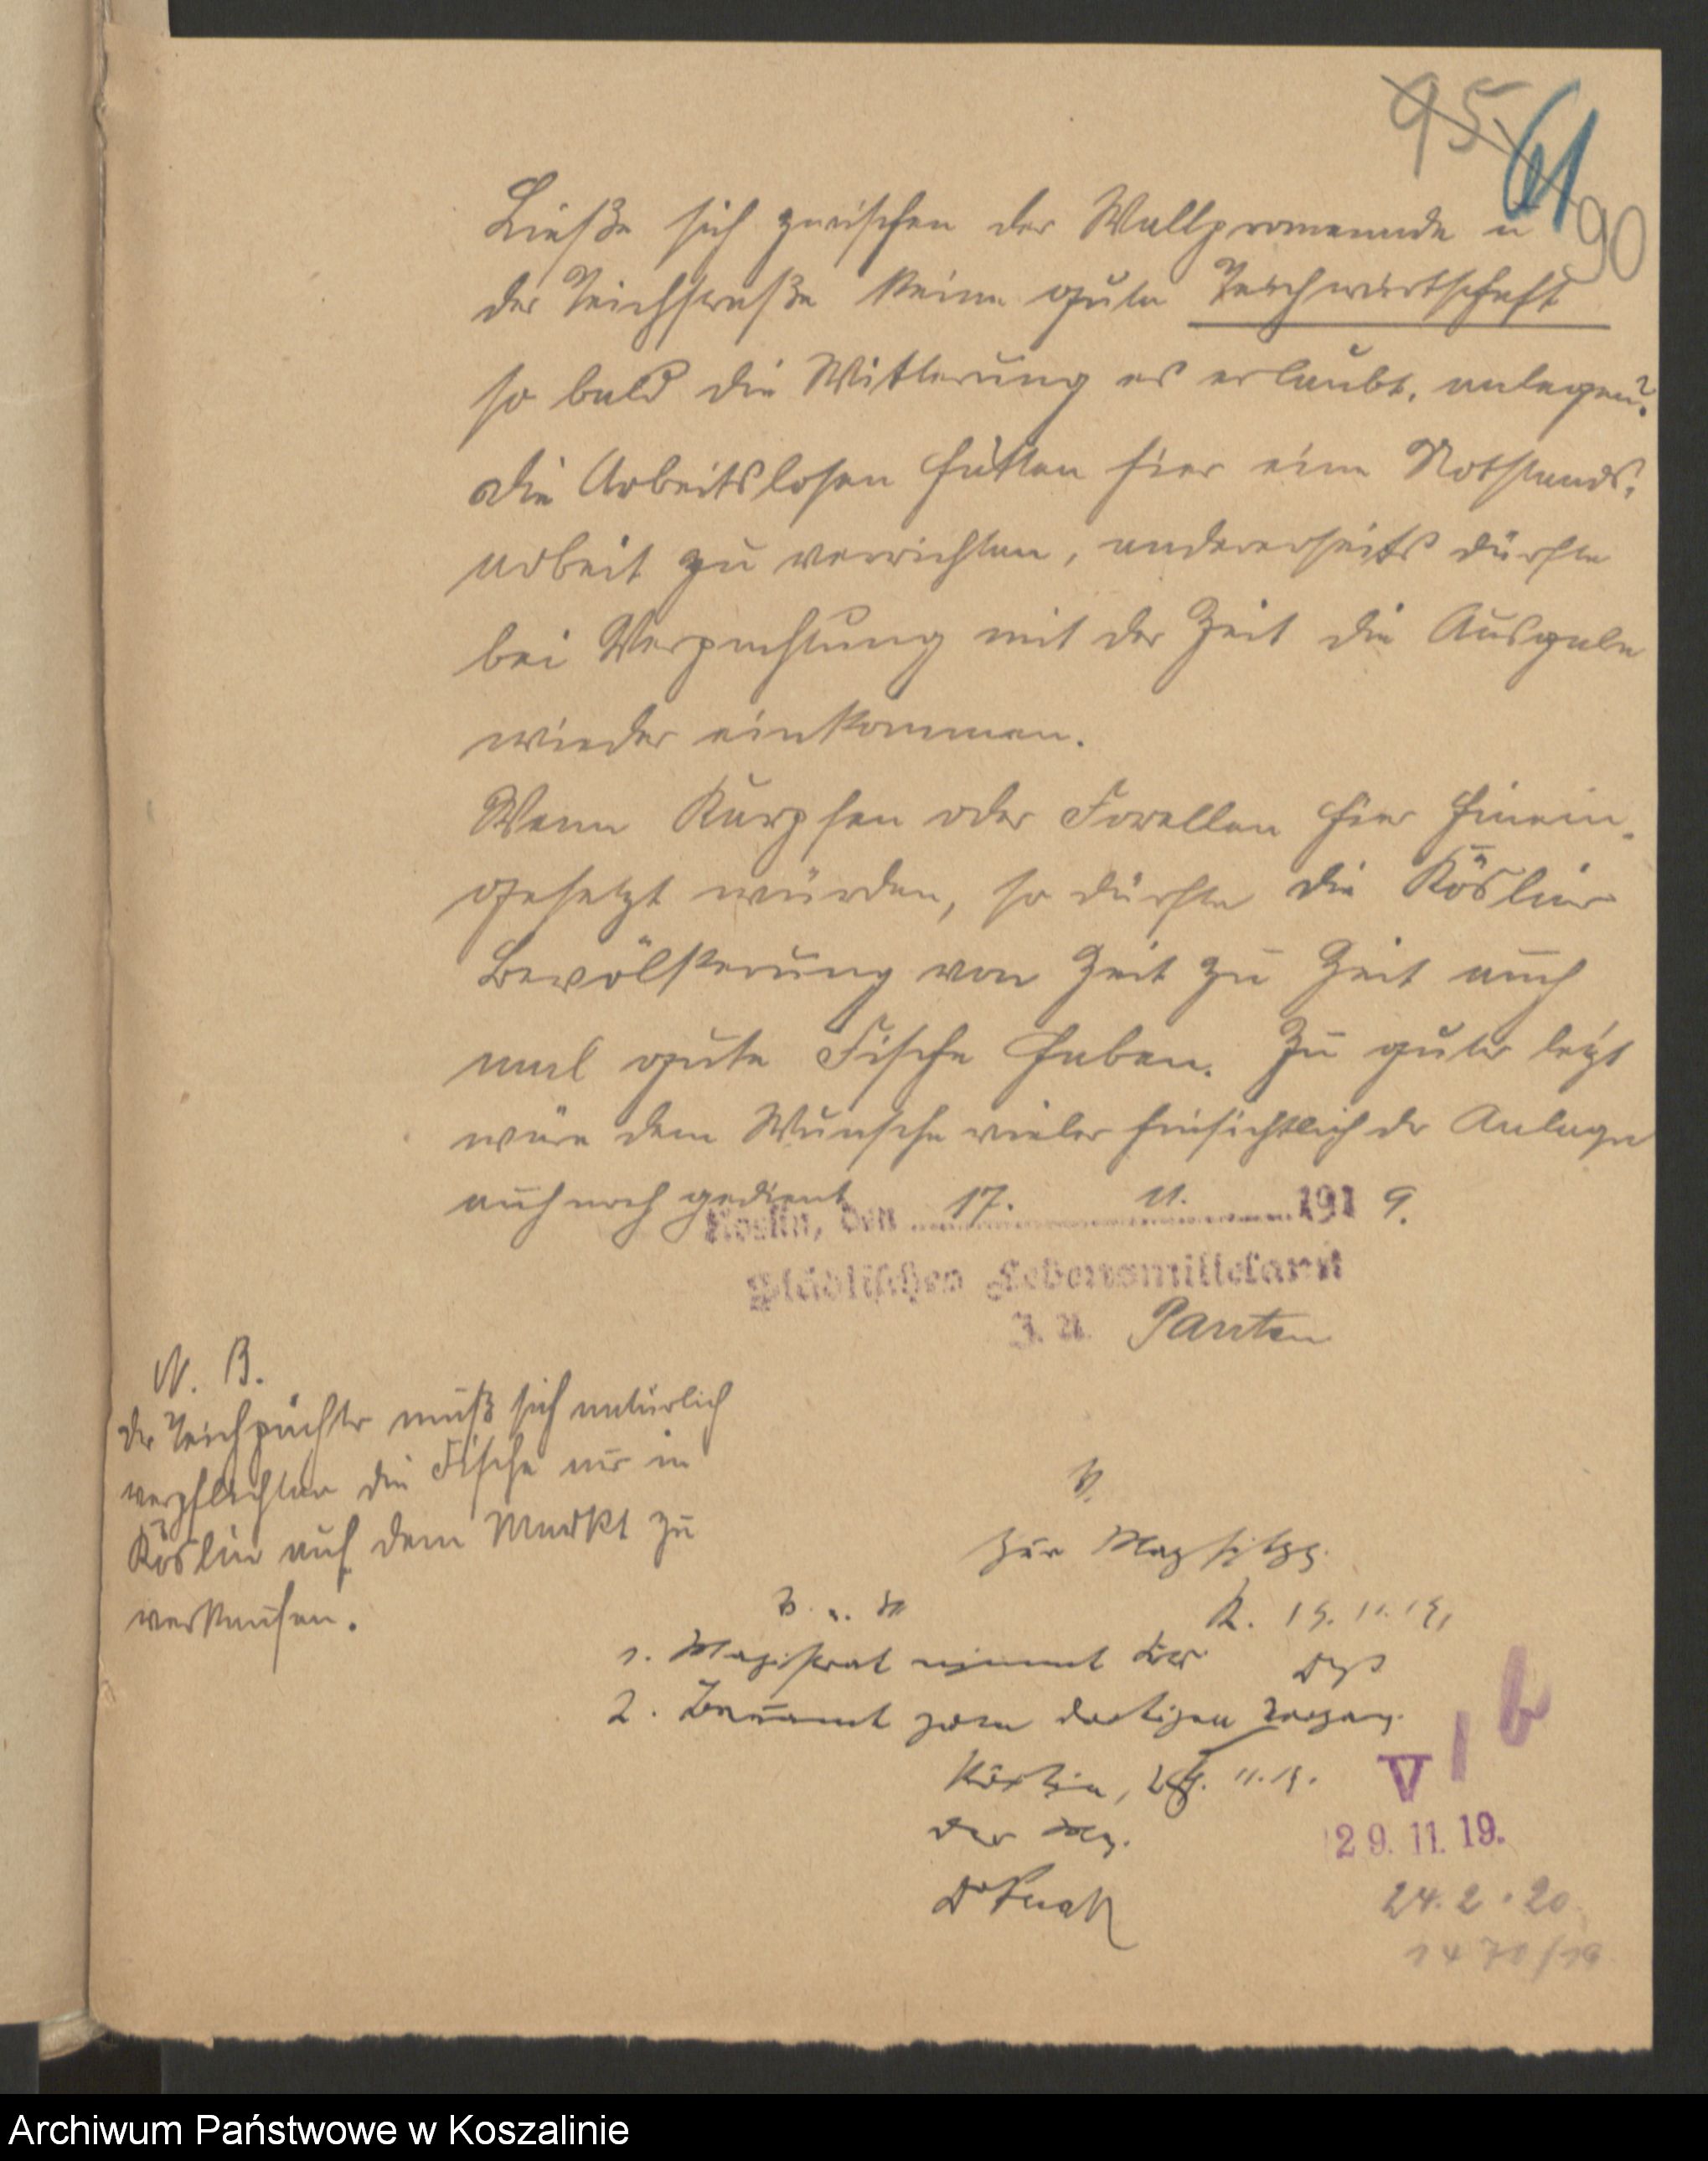 95
61
90
Ließe sich zwischen der Wallpromenade u
der Teichstraße keine gute Teichwirtschaft
so bald die Witterung es erlaubt, anlegen?
Die Arbeitslosen hätten hier eine Notstands-
arbeit zu verrichten, andererseits dürfte
bei Verpachtung mit der Zeit die Ausgabe
wieder einkommen.
Wenn Karpfen oder Forellen hier hinein-
gesetzt würden, so dürfte die Kösliner
Bevölkerung von Zeit zu Zeit auch
mal gute Fische haben. Zu guter letzt
wäre dem Wunsche vieler hinsichtlich der Anlage
auch noch gedient
Köslin, den 17. 11. 1919.
Städtisches Lebensmittelamt
J. A. Panten
N. B.
Der Teichpächter muß sich natürlich
verpflichten die Fische nur in
Köslin auf dem Markt zu
verkaufen.
V.
Zur Mag sitzg.
K. 19. 11. 19.
1. Magistrat nimmt
2. Bauamt zum dortigen Vorgang.
Köslin, 11. 19.
Der Mag.
V
29. 11. 19.
24. 2. 20